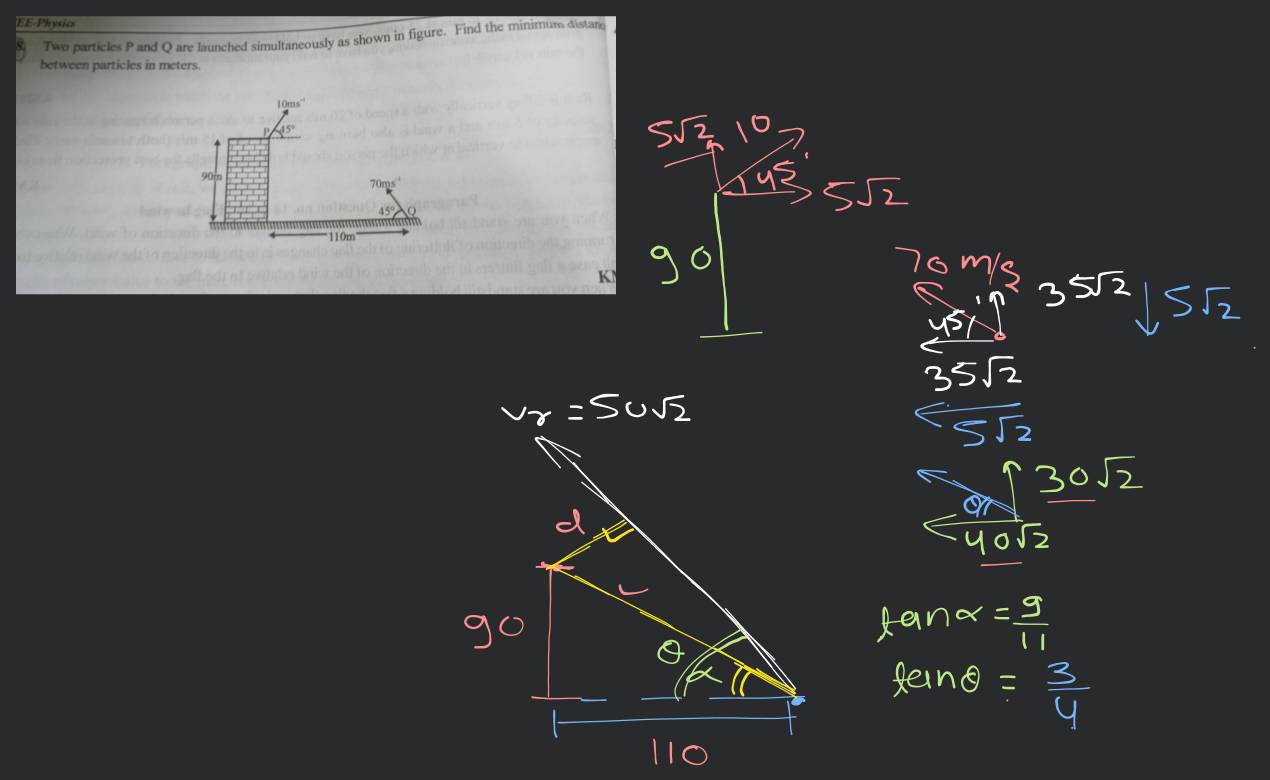 EE-Physics
8. Two particles P and Q are launched simultaneously as shown in figure. Find the minimum distan
between particles in meters.
10ms⁻¹
P 45°
90m
70ms⁻¹
45° Q
110m
5√2 10
45°
5√2
90
70 m/s
35√2 5√2
45°
35√2
5√2
30√2
θ
40√2
vr = 50√2
d
90
θ
α
110
tanα = 9/11
tanθ = 3/4